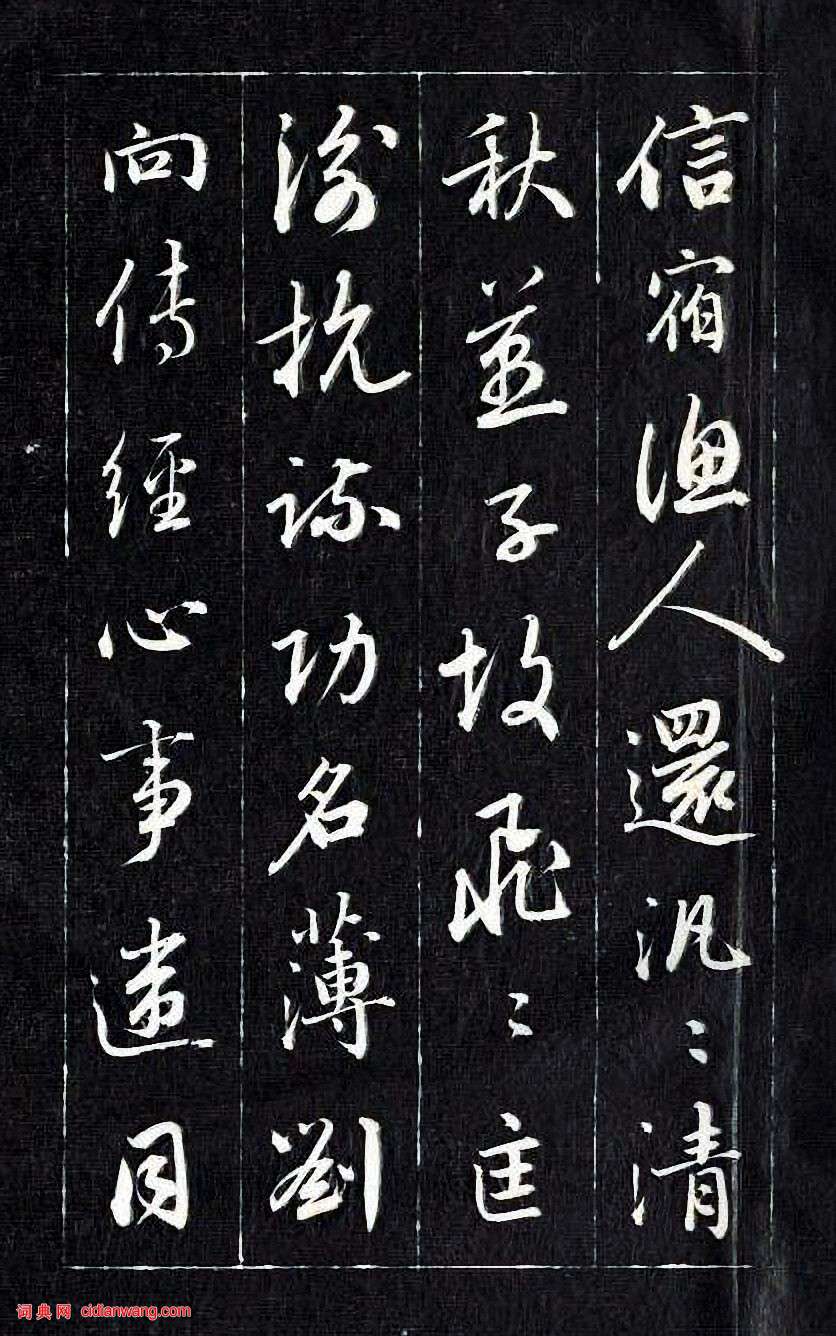 信宿漁人還汎〻清
秋並子故飛〻匡
衡抗疏功名薄劉
向傳經心事違同
词典网 cidianwang.com